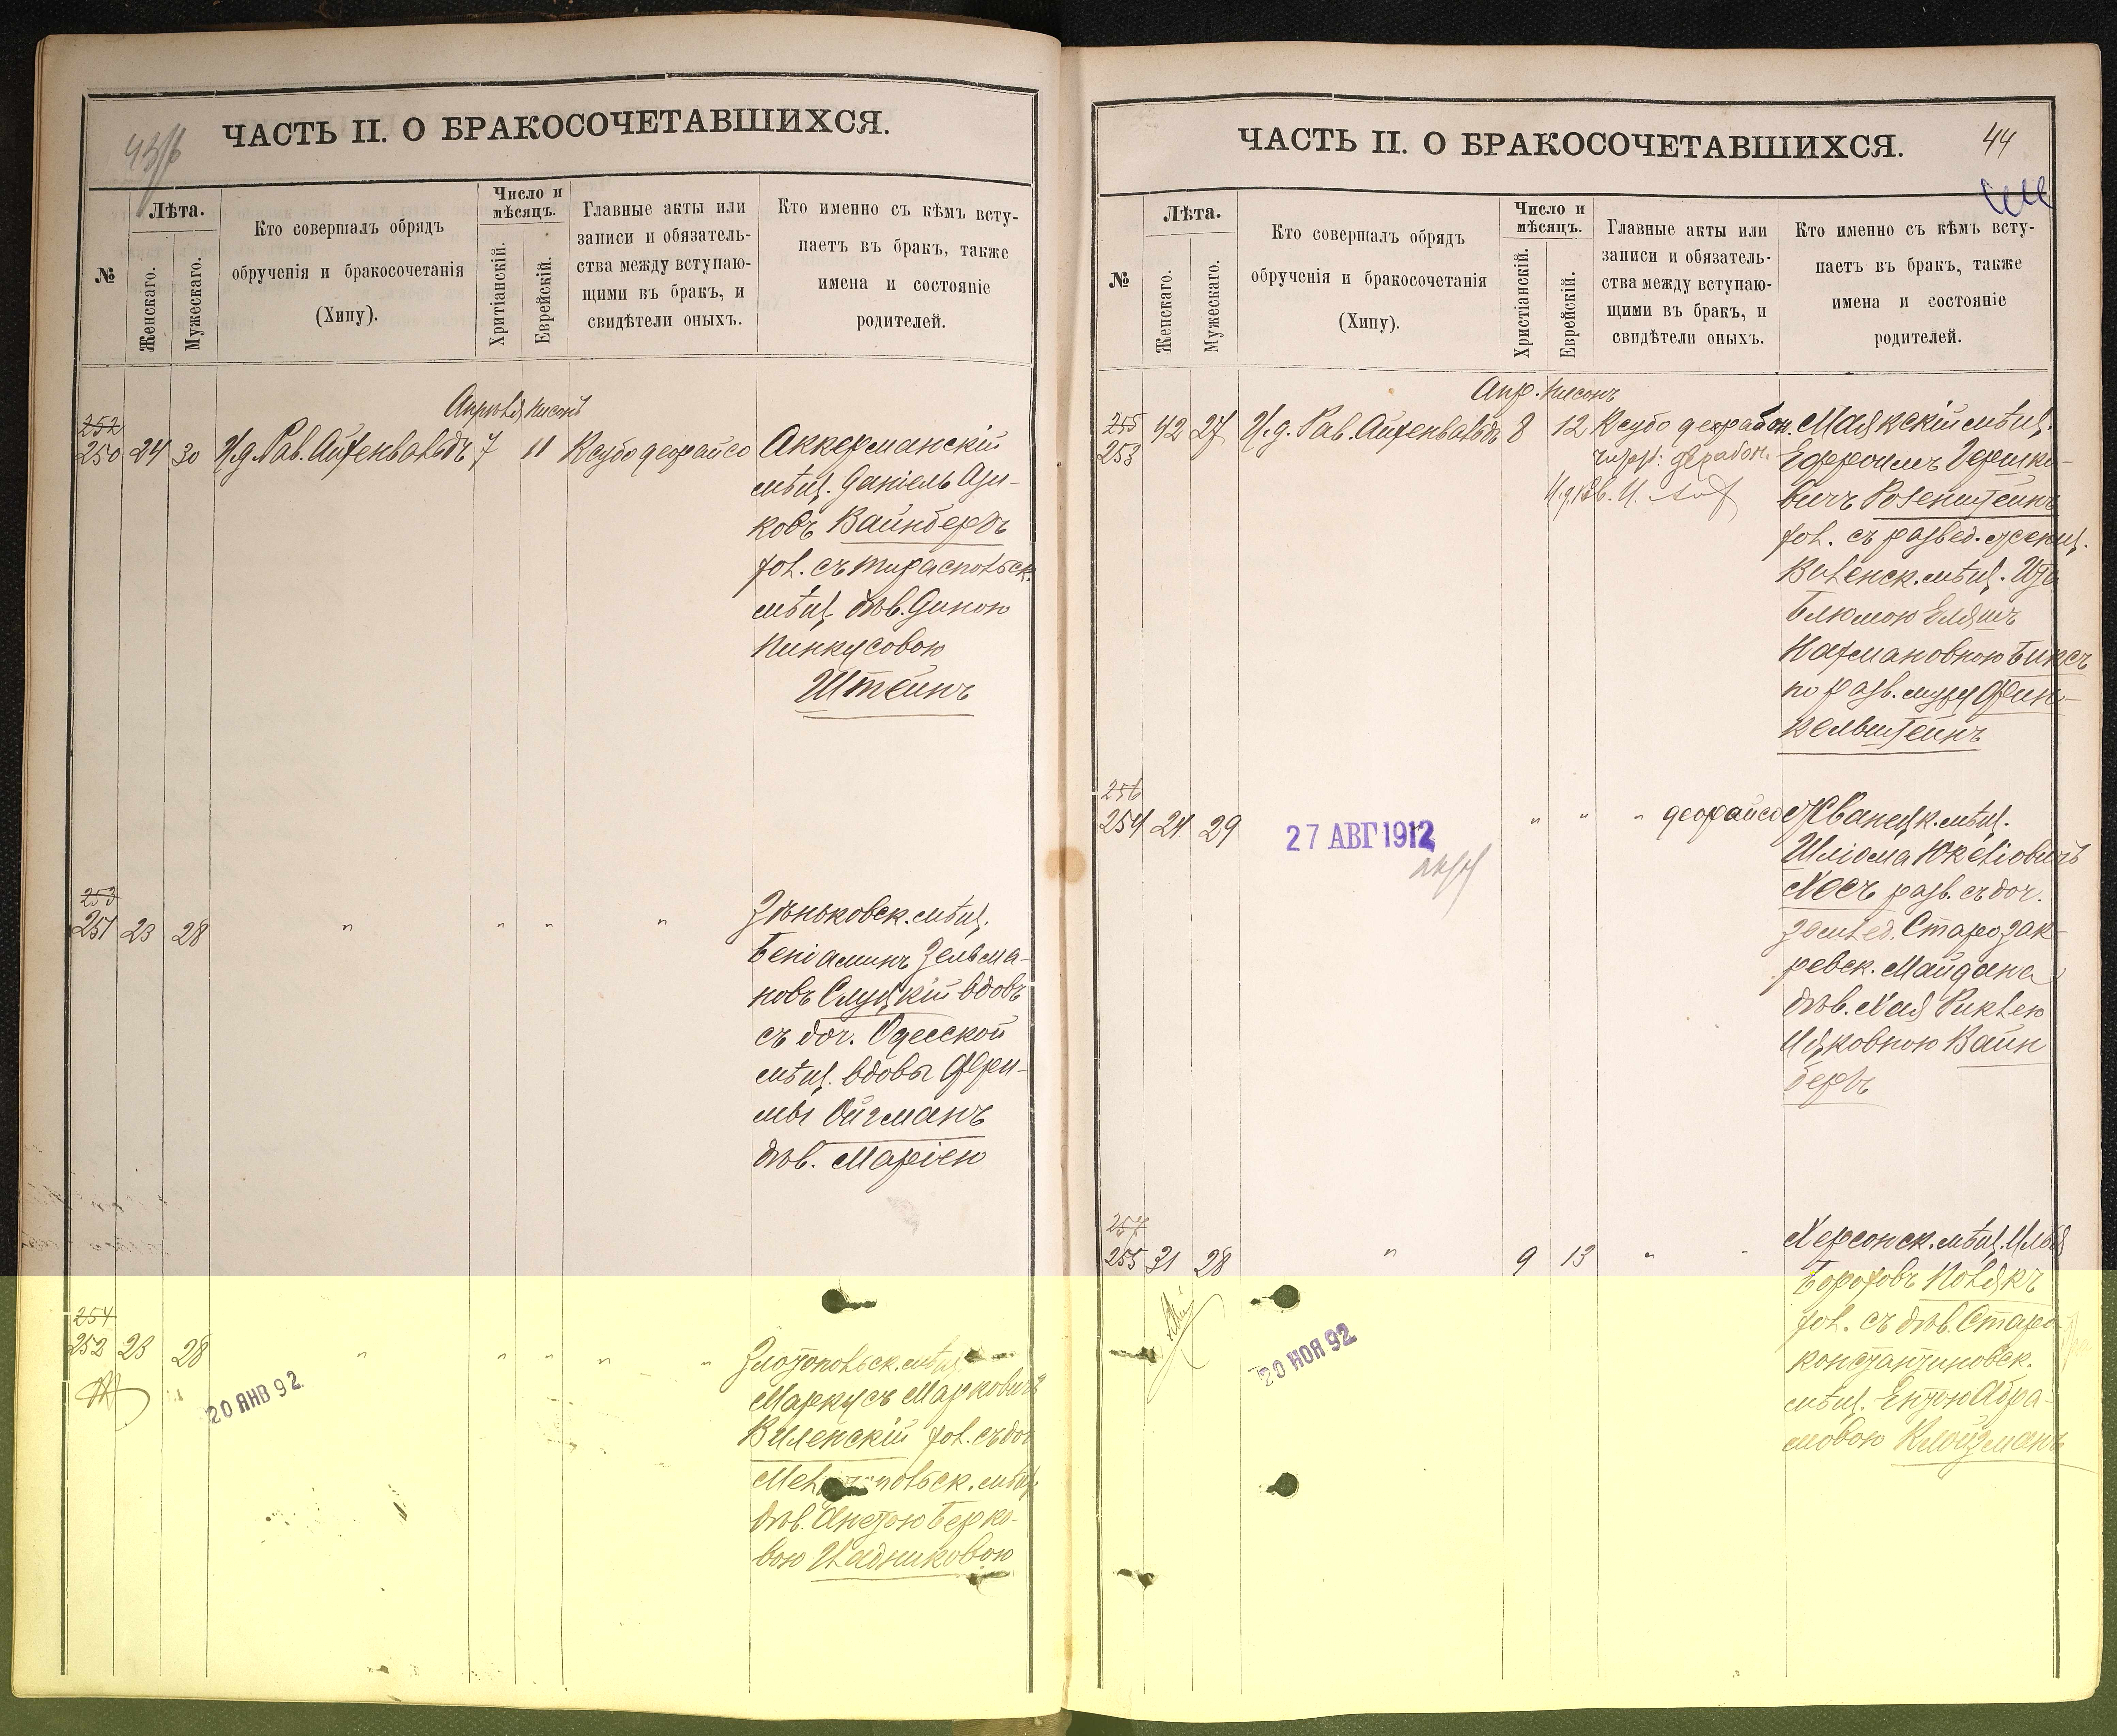 ЧАСТЬ II. О БРАКОСОЧЕТАВШИХСЯ.
№
Лѣта.
Женскаго.
Мужескаго.
Кто совершалъ обрядъ
обрученія и бракосочетанія
(Хипу).
Число и
мѣсяцъ.
Хритіанскій.
Еврейскій.
Главные акты или
записи и обязатель-
ства между вступаю-
щими въ бракъ, и
свидѣтели оныхъ.
Кто именно съ кѣмъ всту-
паетъ въ бракъ, также
имена и состояніе
родителей.
Апрѣля Нисонъ
252
250 24 30 И.д. Рав. Айхенвальдъ 7 11 Ксубо деорайсо Аккерманскій
мѣщ. Даніель Ази-
ковъ Вайнбергъ
хол. съ тираспольск.
мѣщ. дѣв. Диною
Пинкусовою
Штейнъ
253
251 23 28 " " " " Зѣньковск. мѣщ.
Беніаминъ Зельма-
новъ Слуцкій вдовъ
съ доч. Одесской
мѣщ. вдовы Фри-
мы Ойгманъ
дѣв. Маріею
254
252 23 28 " " " " " Златопольск. мѣщ.
20 ЯНВ 92
Маркусъ Марковичъ
Виленскій хол. съ доч
дѣв. Анетою Берко-
вою Цадиковою
ЧАСТЬ II. О БРАКОСОЧЕТАВШИХСЯ.
44
№
Лѣта.
Женскаго.
Мужескаго.
Кто совершалъ обрядъ
обрученія и бракосочетанія
(Хипу).
Число и
мѣсяцъ.
Христіанскій.
Еврейскій.
Главные акты или
записи и обязатель-
ства между вступаю-
щими въ бракъ, и
свидѣтели оныхъ.
Кто именно съ кѣмъ всту-
паетъ въ бракъ, также
имена и состояніе
родителей.
Апр. Нисонъ
255
253 42 27 И.д. Рав. Айхенвальдъ 8 12 Ксубо дерабон. Маякскій мѣщ.
дерабон. Ефроимъ Гершко-
вичъ Розенштейнъ
хол. съ развед. женщ.
Виленск. мѣщ.
Блюмою
Нахмановною Биксъ
по разв. мужу Фин-
кельштейнъ
256
254 24 29 " " " деорайсо Жванецк. мѣщ.
27 АВГ 1912
Шліома Юкеліовичъ
Хесъ разв. съ доч.
землед. Старозак-
ревск. Майдана
дѣв. Хая Риклею
Ицковною Вайн
бергъ
257
255 31 28 " 9 13 " " Херсонск. мѣщ. Илья
Боруховъ Полякъ
20 НОЯ 92
хол. съ дѣв. Старо-
константиновск.
мѣщ. Ентою Абра-
мовою Клойзманъ